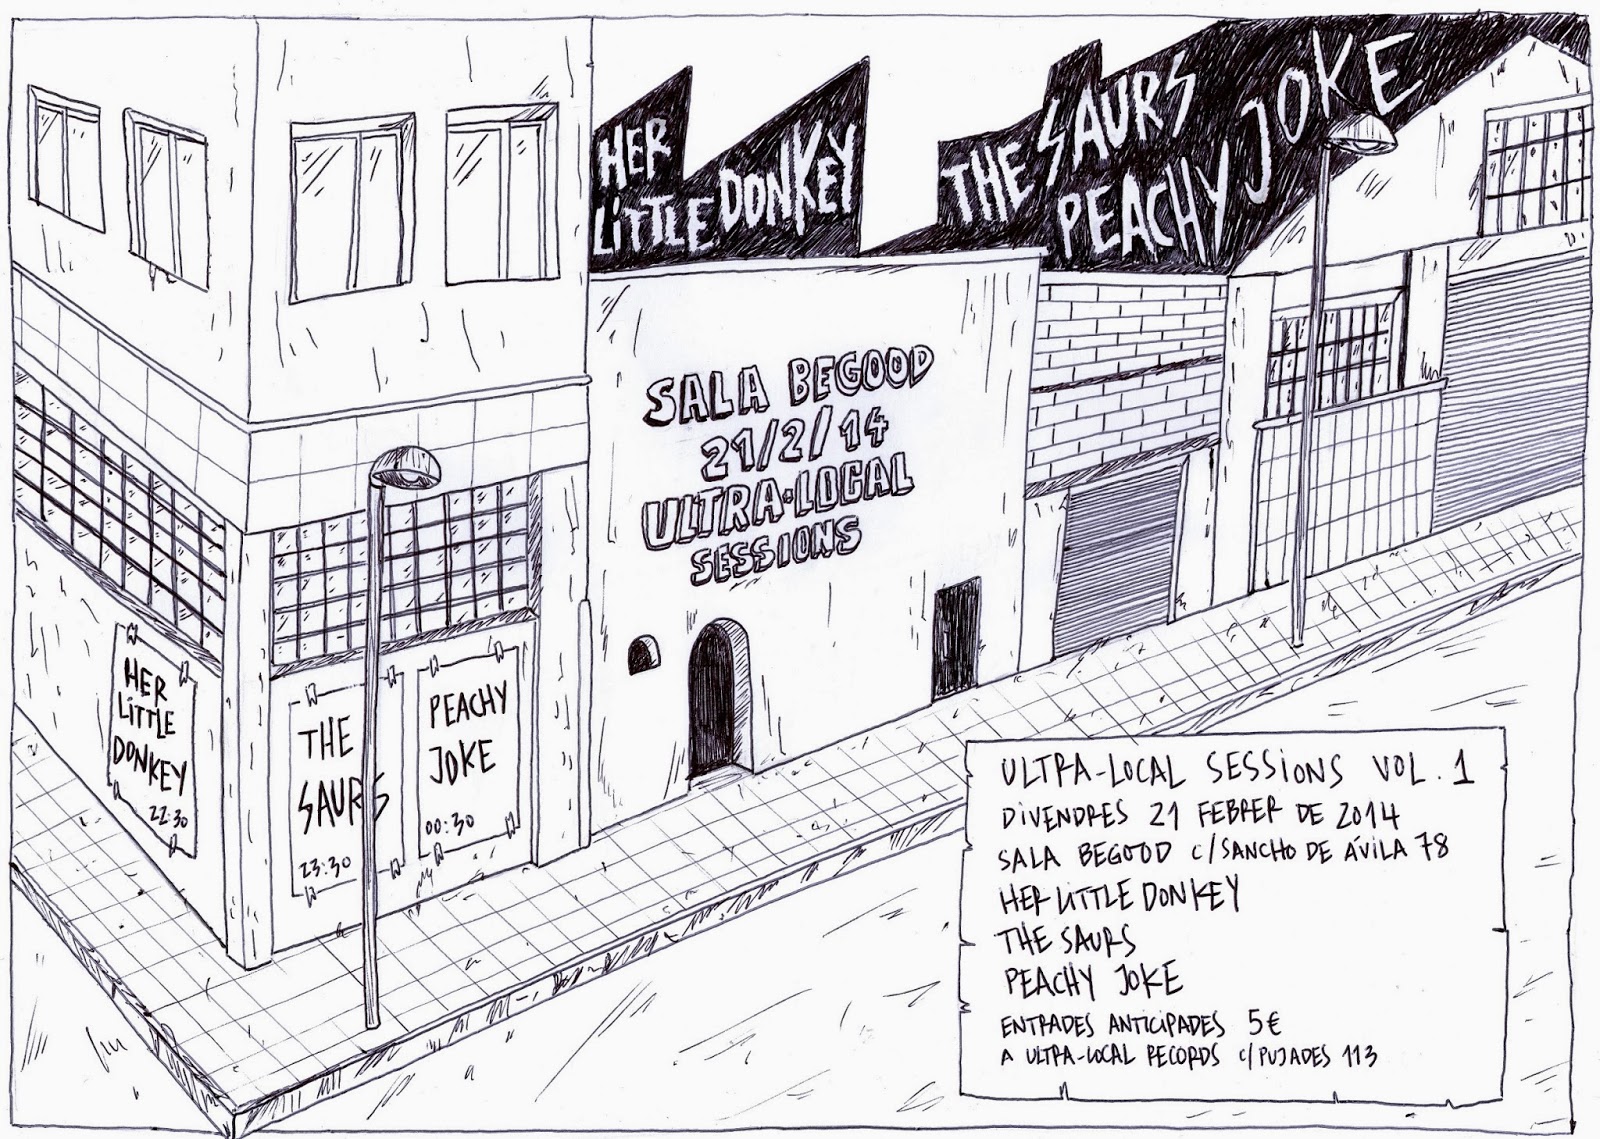 HER
LITTLE DONKEY
THE SAURS
PEACHY JOKE
SALA BEGOOD
21/2/14
ULTRA·LOCAL
SESSIONS
HER
LITTLE
DONKEY
22:30
THE
SAURS
23:30
PEACHY
JOKE
00:30
ULTRA-LOCAL SESSIONS VOL. 1
DIVENDRES 21 FEBRER DE 2014
SALA BEGOOD C/SANCHO DE ÁVILA 78
HER LITTLE DONKEY
THE SAURS
PEACHY JOKE
ENTRADES ANTICIPADES 5€
A ULTRA-LOCAL RECORDS C/PUJADES 113